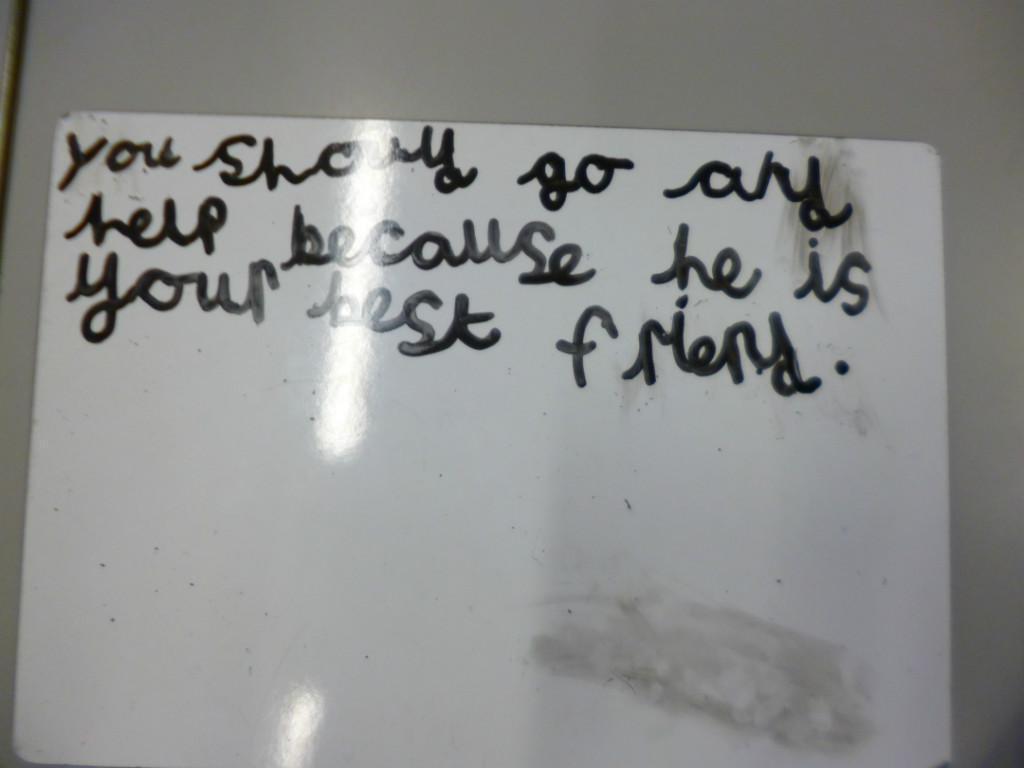 you should go and
help because he is
your best friend.